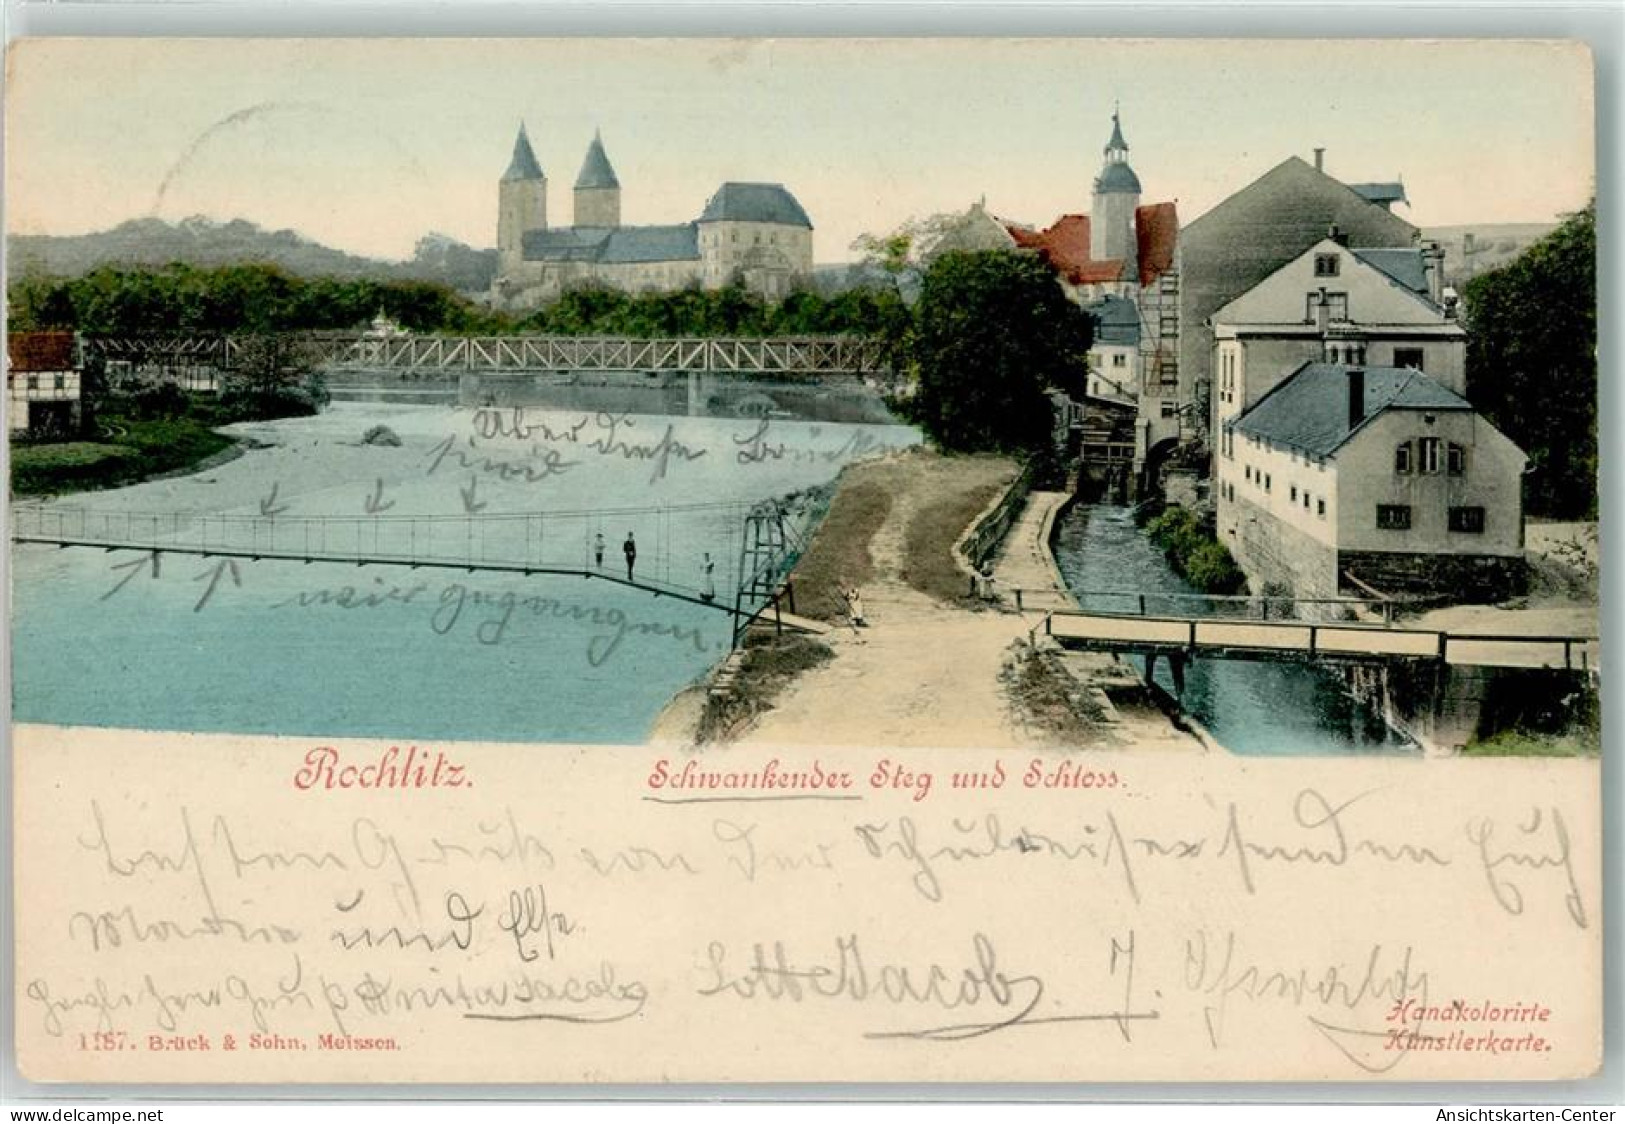 Über diese Brücke
sind
wir gegangen.
Rochlitz.
Schwankender Steg und Schloss.
Besten Gruß von der Schulreise senden Euch
Marie und Else.
Herzlichen Gruß Anita Jacobs Lotte Jacobs. J.
1187. Brück & Sohn, Meissen.
Handkolorirte
Künstlerkarte.
delcampe.net
Ansichtskarten-Center